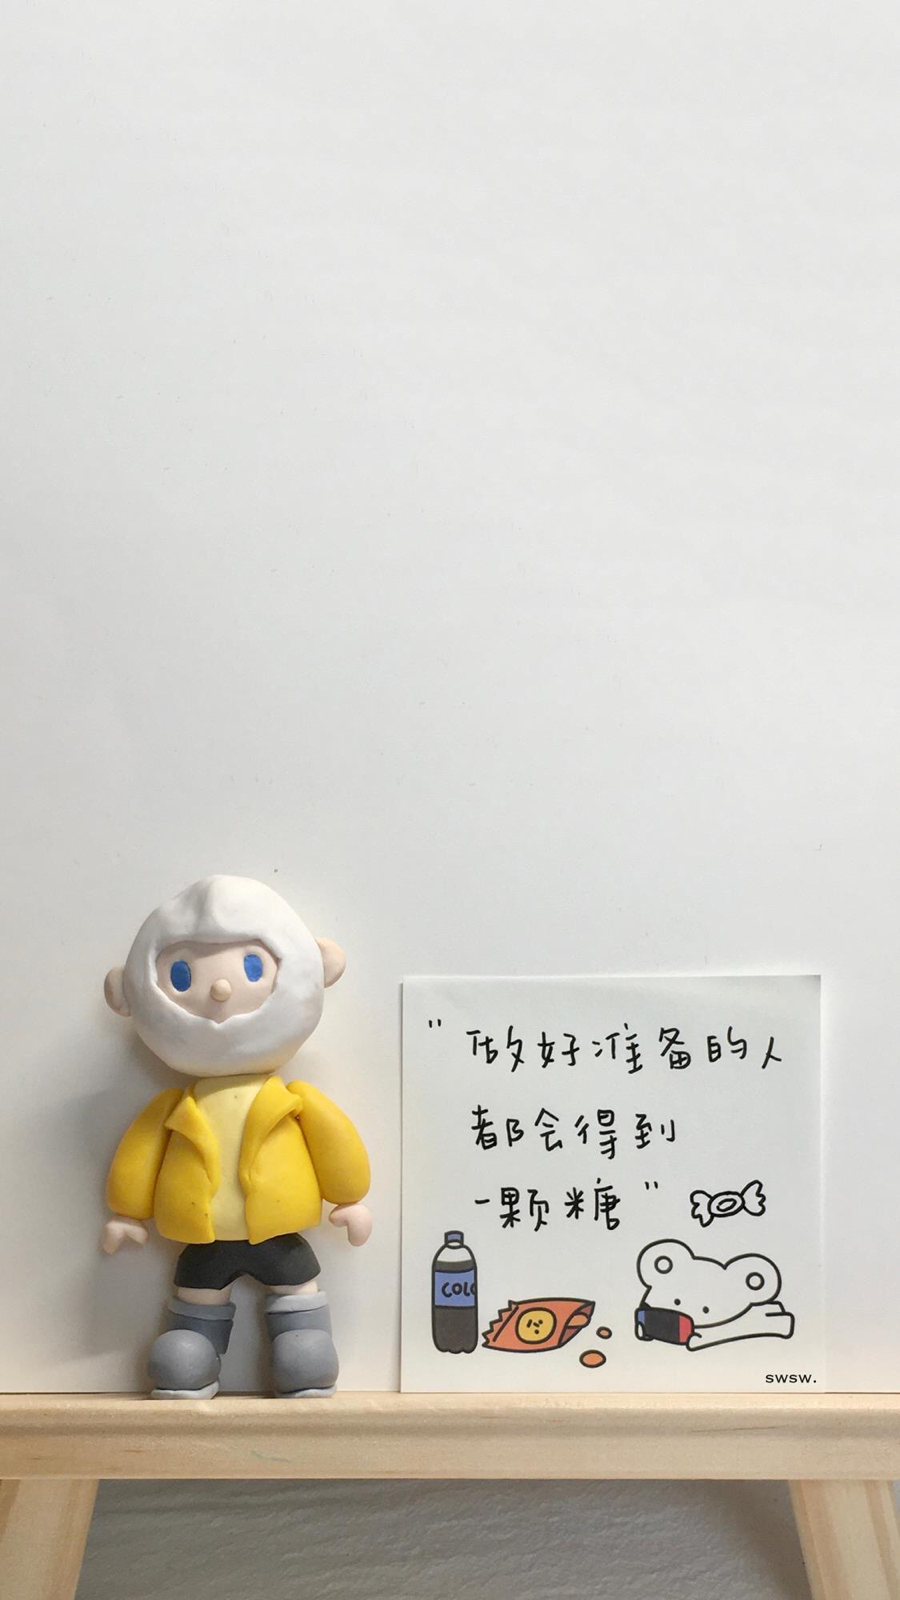 "做好准备的人
都会得到
一颗糖"
COLO
swsw.